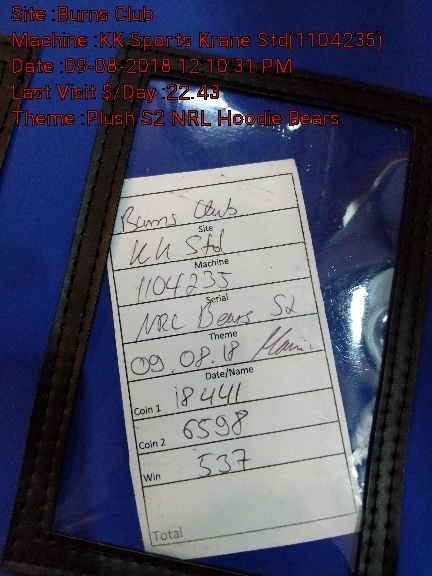 Site :Burns Club
Machine :KK Sports Krane Std(1104235)
Date :09-08-2018 12:10:31 PM
Last Visit $/Day :22.43
Theme :Plush S2 NRL Hoodie Bears
Burns Club
Site
KK Std
Machine
1104235
Serial
NRL Bears S2
Theme
09.08.18
Date/Name
Coin 1 18441
Coin 2 6598
Win 537
Total